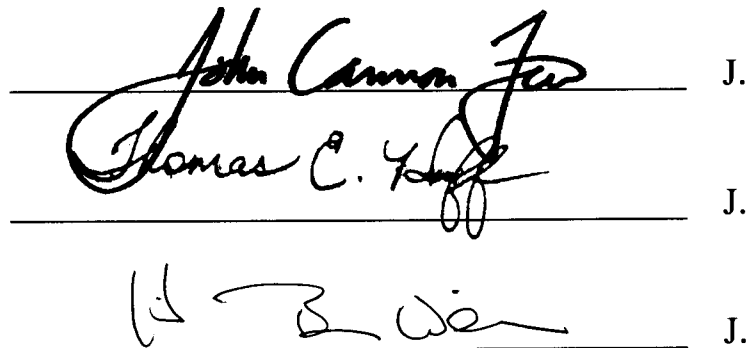 John Cannon Few J.
Thomas C. Huff J.
J.